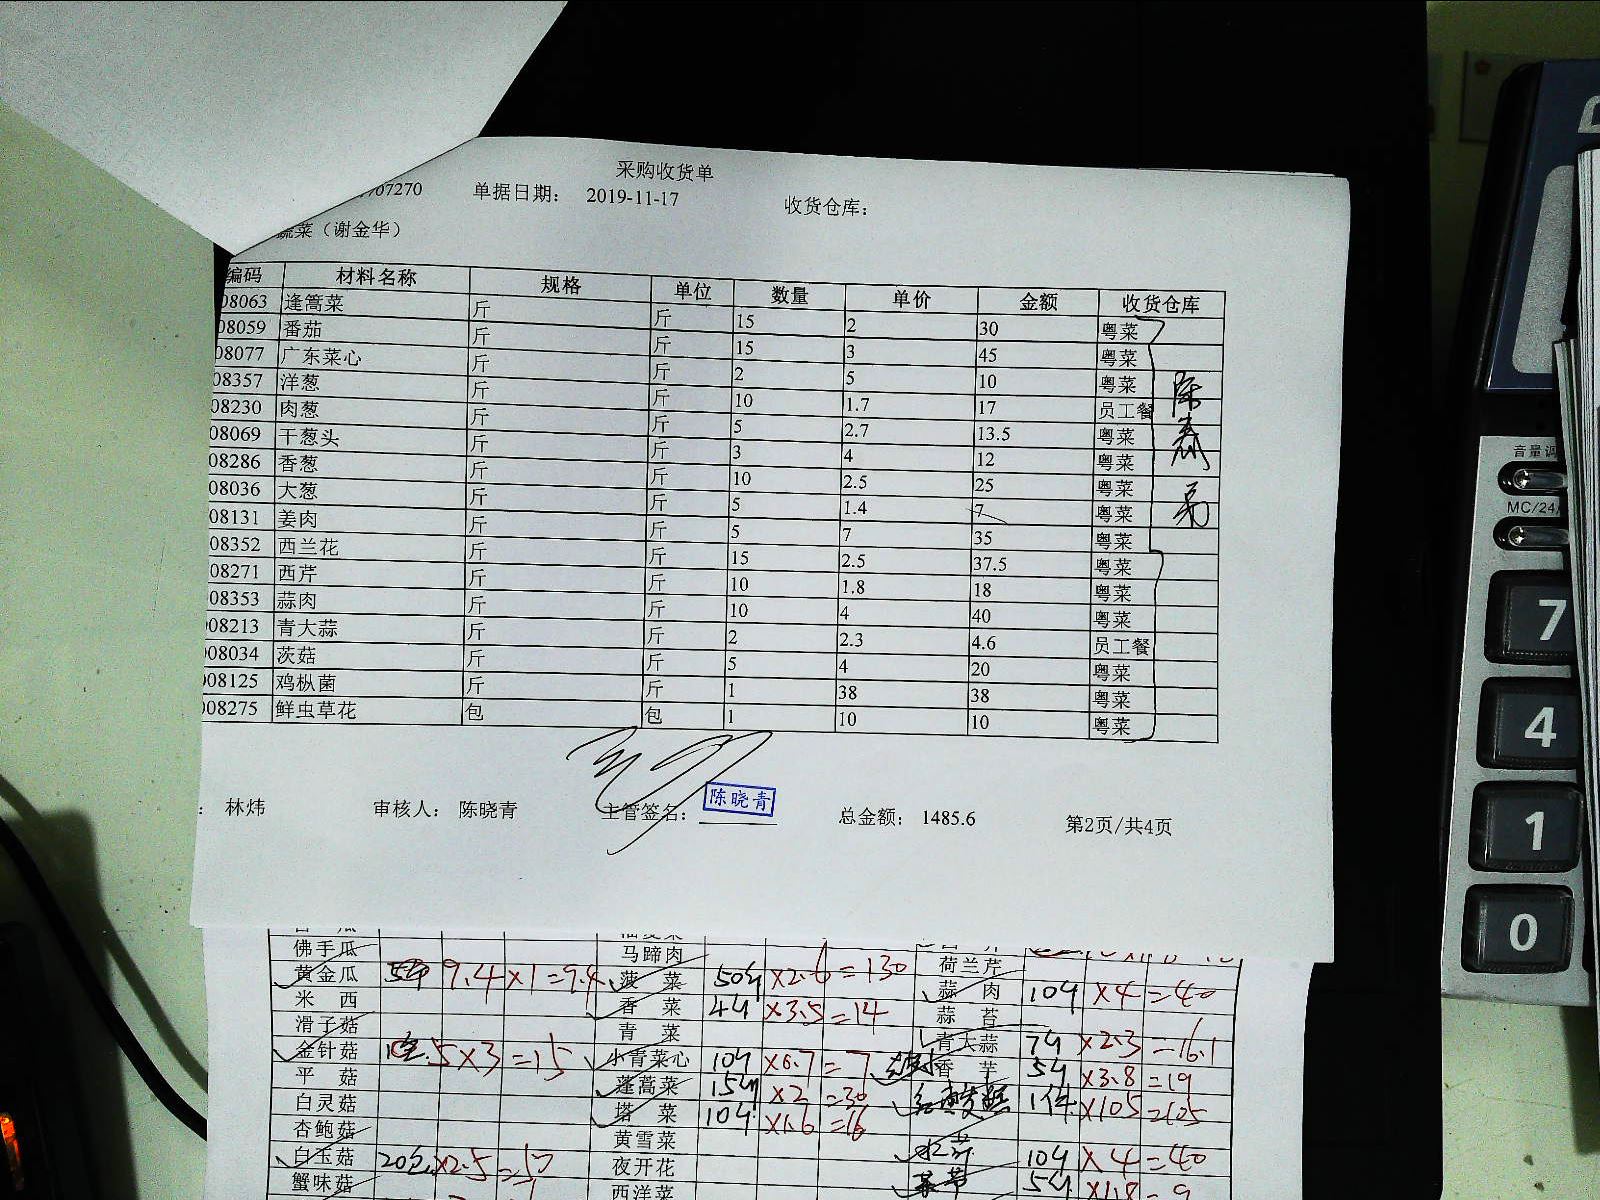 采购收货单
07270 单据日期： 2019-11-17 收货仓库：
蔬菜（谢金华）
编码 材料名称 规格 单位 数量 单价 金额 收货仓库
08063 逢蒿菜 斤 斤 15 2 30 粤菜
08059 番茄 斤 斤 15 3 45 粤菜
08077 广东菜心 斤 斤 2 5 10 粤菜
08357 洋葱 斤 斤 10 1.7 17 员工餐
08230 肉葱 斤 斤 5 2.7 13.5 粤菜
08069 干葱头 斤 斤 3 4 12 粤菜
08286 香葱 斤 斤 10 2.5 25 粤菜
08036 大葱 斤 斤 5 1.4 7 粤菜
08131 姜肉 斤 斤 5 7 35 粤菜
08352 西兰花 斤 斤 15 2.5 37.5 粤菜
08271 西芹 斤 斤 10 1.8 18 粤菜
08353 蒜肉 斤 斤 10 4 40 粤菜
08213 青大蒜 斤 斤 2 2.3 4.6 员工餐
08034 茨菇 斤 斤 5 4 20 粤菜
08125 鸡枞菌 斤 斤 1 38 38 粤菜
08275 鲜虫草花 包 包 1 10 10 粤菜
：林炜 审核人： 陈晓青 主管签名： 陈晓青 总金额： 1485.6 第2页/共4页
佛手瓜 马蹄肉 荷兰芹
黄金瓜 9.4×1=9.4 菠菜 50斤 ×2.6=130 蒜肉 10斤 ×4=40
米西 香菜 4斤 ×3.5=14 蒜苔
滑子菇 青菜 青大蒜 7斤 ×2.3=16.1
金针菇 5×3=15 小青菜心 10斤 ×0.7=7 香芋 5斤 ×3.8=19
平菇 蓬蒿菜 15斤 ×2=30 1件 ×105=105
白灵菇 塔菜 10斤 ×1.6=16
杏鲍菇 黄雪菜 10斤 ×4=40
白玉菇 20包 ×2.5=50 夜开花 5斤 ×1.8=9
蟹味菇 西洋菜
音量调
MC/24/
7
4
1
0